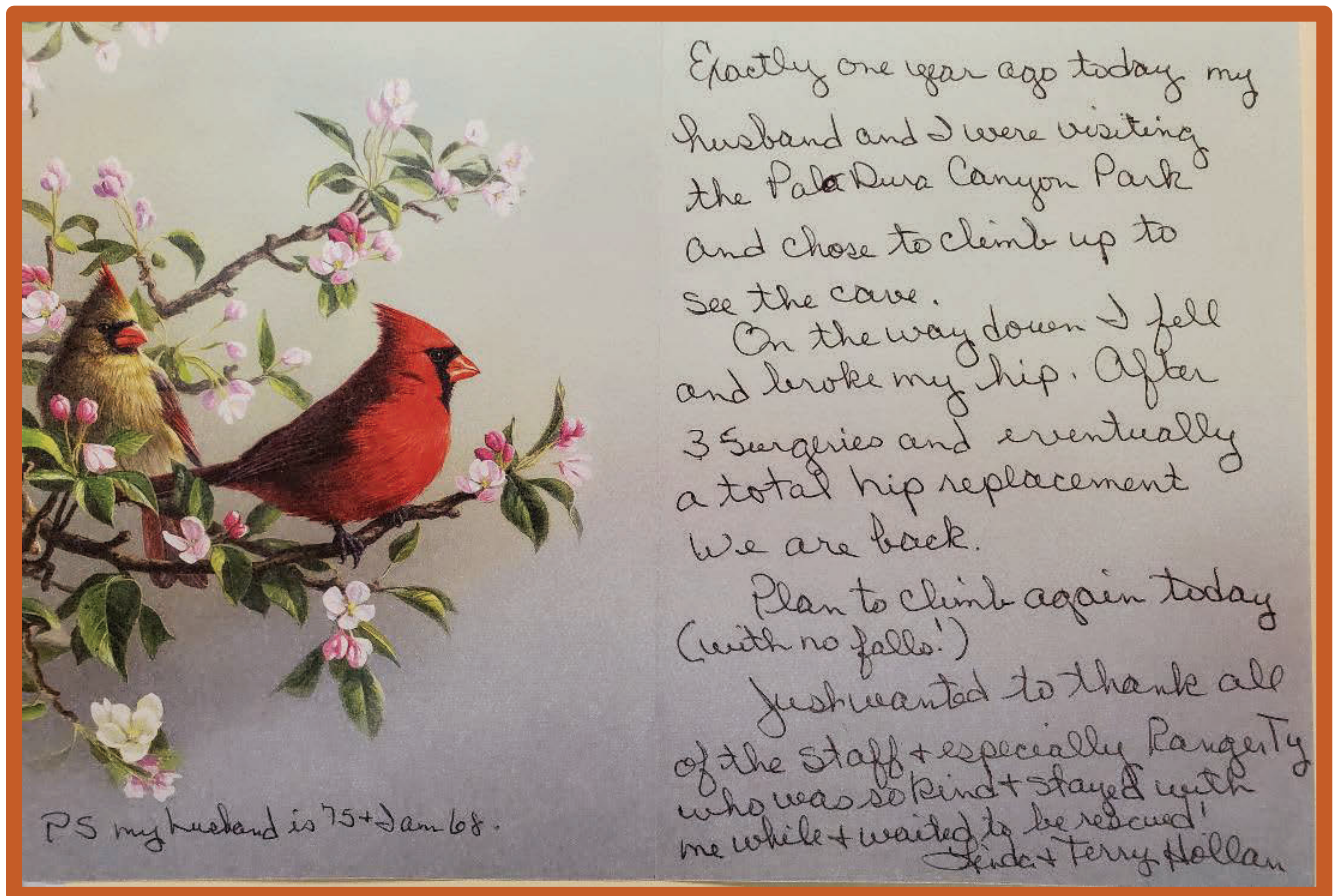 Exactly one year ago today my
husband and I were visiting
the Palo Dura Canyon Park
and chose to climb up to
see the cave.
On the way down I fell
and broke my hip. After
3 Surgeries and eventually
a total hip replacement
We are back.
Plan to climb again today
(with no falls!)
Just wanted to thank all
of the staff + especially Ranger Ty
who was so kind + stayed with
me while I waited to be rescued!
Linda + Terry Hollan
PS my husband is 75 + I am 68.